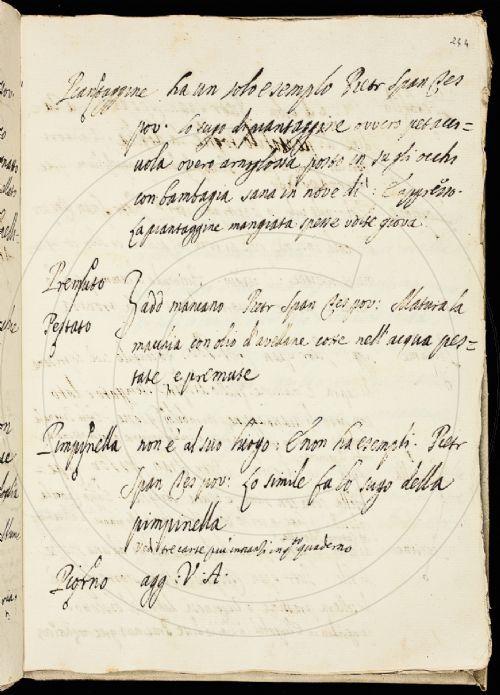 244
Piantaggine ha un solo esemplo Pietr Span Tes
pov. Lo sugo di piantaggine overo petacci=
uola overo arnoglossa posto in sugli occhi
con bambagia sana in nove dì: E appresso.
La piantaggine mangiata spesse volte giova
Premuto
Pestato
add mancano Pietr Span Tes pov: Matura la
macchia con olio d'avellane cotte nell'acqua pes=
tate e premute
Pimpinella non è al suo luogo: E non ha esempli. Pietr
Span Tes pov: Lo simile fa lo sugo della
pimpinella
vedi tre carte più innanzi in qto quaderno
Piorno agg: V: A: